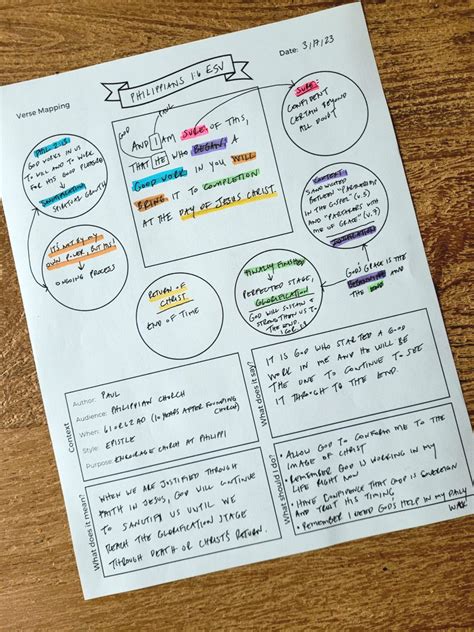 Date: 3/17/23
Verse Mapping
PHILIPPIANS 1:6 ESV
GOD
PAUL
AND I AM SURE OF THIS,
THAT HE WHO BEGAN A
GOOD WORK IN YOU WILL
BRING IT TO COMPLETION
AT THE DAY OF JESUS CHRIST.
SURE:
CONFIDENT
CERTAIN BEYOND
ALL DOUBT
PHIL 2:13
GOD WORKS IN US
TO WILL AND TO WORK
FOR HIS GOOD PLEASURE
SANCTIFICATION
SPIRITUAL GROWTH
CONTEXT:
SANDWICHED
BETWEEN "PARTNERSHIP
IN THE GOSPEL" (v.5)
AND "PARTAKERS WITH
ME OF GRACE" (v.7)
JUSTIFICATION
IT'S NOT BY MY
OWN POWER, BUT HIS!
ONGOING PROCESS
RETURN OF
CHRIST
END OF TIME
FINALLY FINISHED
PERFECTED STAGE,
GLORIFICATION
GOD WILL SUSTAIN &
STRENGTHEN US TO
THE END.
1 COR 1:8
GOD'S GRACE IS THE
BEGINNING AND
THE END
Context
Author: PAUL
Audience: PHILIPPIAN CHURCH
When: 61 OR 62 AD (10 YEARS AFTER FOUNDING CHURCH)
Style: EPISTLE
Purpose: ENCOURAGE CHURCH AT PHILIPPI
What does it say?
IT IS GOD WHO STARTED A GOOD
WORK IN ME AND HE WILL BE
THE ONE TO CONTINUE TO SEE
IT THROUGH TO THE END.
What does it mean?
WHEN WE ARE JUSTIFIED THROUGH
FAITH IN JESUS, GOD WILL CONTINUE
TO SANCTIFY US UNTIL WE
REACH THE GLORIFICATION STAGE
THROUGH DEATH OR CHRIST'S RETURN.
What should I do?
• ALLOW GOD TO CONFORM ME TO THE
IMAGE OF CHRIST
• REMEMBER GOD IS WORKING IN MY
LIFE RIGHT NOW
• HAVE CONFIDENCE THAT GOD IS SOVEREIGN
AND TRUST HIS TIMING
• REMEMBER I NEED GOD'S HELP IN MY DAILY
WALK